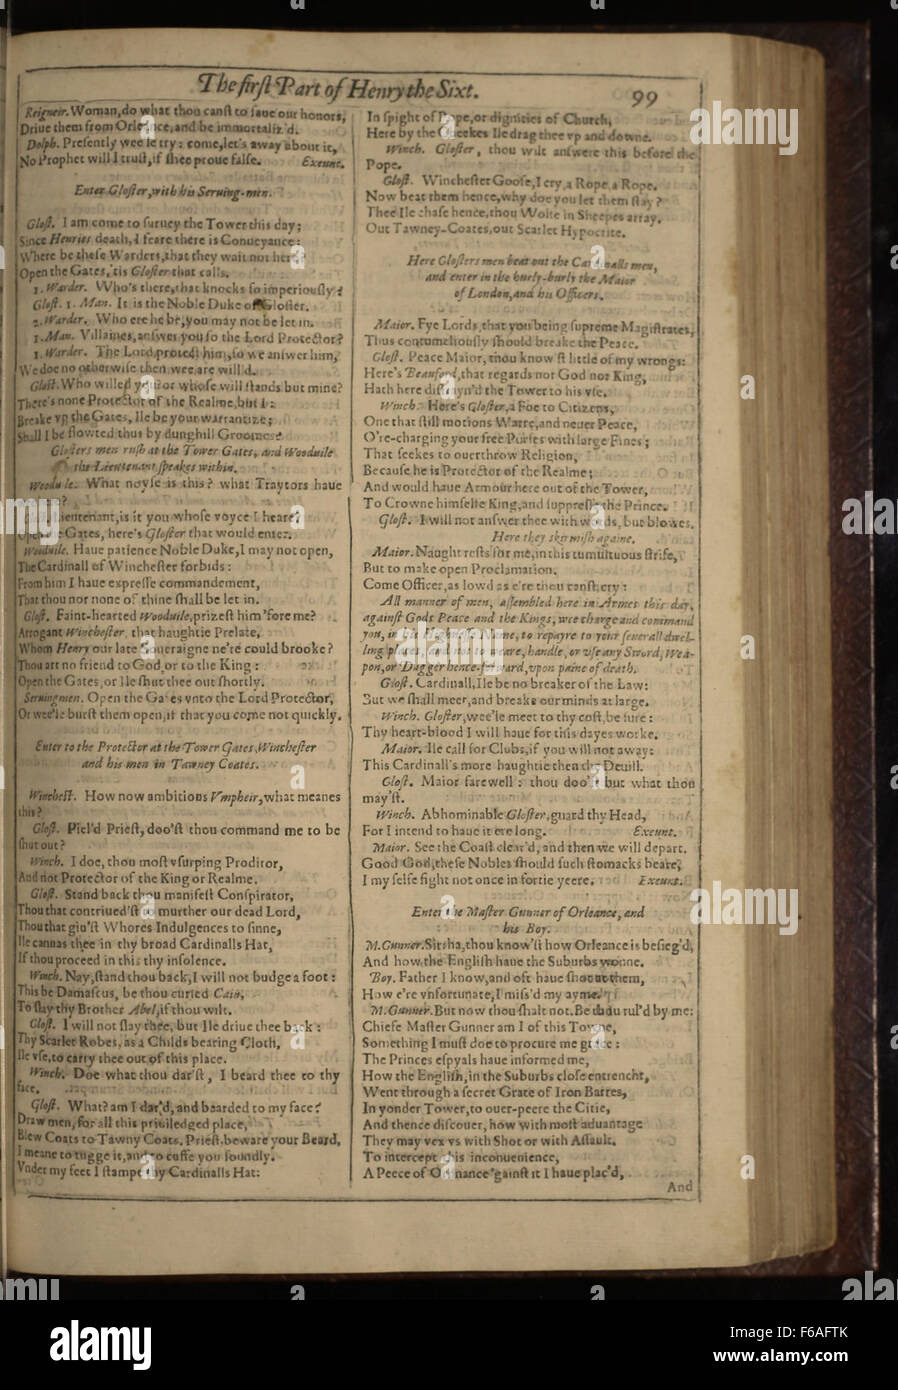 The first Part of Henry the Sixt.
99
Reigneir. Woman, do what thou canst to saue our honors,
Driue them from Orleance, and be immortaliz'd.
Dolph. Presently wee'le try: come, let's away about it,
No Prophet will I trust, if shee proue false. Exeunt.
Enter Gloster, with his Seruing-men.
Glost. I am come to suruey the Tower this day;
Since Henries death, I feare there is Conueyance:
Where be these Warders, that they wait not here?
Open the Gates, 'tis Gloster that calls.
1. Warder. Who's there, that knocks so imperiously?
Glost. 1. Man. It is the Noble Duke of Gloster.
2. Warder. Who ere he be, you may not be let in.
1. Man. Villaines, answer you so the Lord Protector?
1. Warder. The Lord protect him, so we answer him,
We doe no otherwise then wee are will'd.
Glost. Who willed you? or whose will stands but mine?
There's none Protector of the Realme, but I:
Breake vp the Gates, Ile be your warrantize;
Shall I be flowted thus by dunghill Groomes?
Glosters men rush at the Tower Gates, and Wooduile
the Lieutenant speakes within.
Wooduile. What noyse is this? what Traytors haue
?
Lieutenant, is it you whose voyce I heare?
Gates, here's Gloster that would enter.
Wooduile. Haue patience Noble Duke, I may not open,
The Cardinall of Winchester forbids:
From him I haue expresse commandement,
That thou nor none of thine shall be let in.
Glost. Faint-hearted Wooduile, prizest him 'fore me?
Arrogant Winchester, that haughtie Prelate,
Whom Henry our late Soueraigne ne're could brooke?
Thou art no friend to God, or to the King:
Open the Gates, or Ile shut thee out shortly.
Seruingmen. Open the Gates vnto the Lord Protector,
Or wee'le burst them open, if that you come not quickly.
Enter to the Protector at the Tower Gates, Winchester
and his men in Tawney Coates.
Winchest. How now ambitious Vmpheir, what meanes
this?
Glost. Piel'd Priest, doo'st thou command me to be
shut out?
Winch. I doe, thou most vsurping Proditor,
And not Protector of the King or Realme.
Glost. Stand back thou manifest Conspirator,
Thou that contriued'st to murther our dead Lord,
Thou that giu'st Whores Indulgences to sinne,
Ile canuas thee in thy broad Cardinalls Hat,
If thou proceed in this thy insolence.
Winch. Nay, stand thou back, I will not budge a foot:
This be Damascus, be thou cursed Cain,
To slay thy Brother Abel, if thou wilt.
Glost. I will not slay thee, but Ile driue thee back:
Thy Scarlet Robes, as a Childs bearing Cloth,
Ile vse, to carry thee out of this place.
Winch. Doe what thou dar'st, I beard thee to thy
face.
Glost. What? am I dar'd, and bearded to my face?
Draw men, for all this priuiledged place,
Blew Coats to Tawny Coats. Priest, beware your Beard,
I meane to tugge it, and to cuffe you soundly.
Vnder my feet I stampe thy Cardinalls Hat:
In spight of Pope, or dignities of Church,
Here by the Cheekes Ile drag thee vp and downe.
Winch. Gloster, thou wilt answere this before the
Pope.
Glost. Winchester Goose, I cry, a Rope, a Rope.
Now beat them hence, why doe you let them stay?
Thee Ile chase hence, thou Wolfe in Sheepes array.
Out Tawney-Coates, out Scarlet Hypocrite.
Here Glosters men beat out the Cardinalls men,
and enter in the hurly-burly the Maior
of London, and his Officers.
Maior. Fye Lords, that you being supreme Magistrates,
Thus contumeliously should breake the Peace.
Glost. Peace Maior, thou know'st little of my wrongs:
Here's Beauford, that regards nor God nor King,
Hath here distrayn'd the Tower to his vse.
Winch. Here's Gloster, a Foe to Citizens,
One that still motions Warre, and neuer Peace,
O're-charging your free Purses with large Fines;
That seekes to ouerthrow Religion,
Because he is Protector of the Realme;
And would haue Armour here out of the Tower,
To Crowne himselfe King, and suppresse the Prince.
Glost. I will not answer thee with words, but blowes.
Here they skirmish againe.
Maior. Naught rests for me, in this tumultuous strife,
But to make open Proclamation.
Come Officer, as lowd as e're thou canst, cry:
All manner of men, assembled here in Armes this day,
against Gods Peace and the Kings, wee charge and command
you, in his Highnesse Name, to repayre to your seuerall dwel-
ling places, and not to weare, handle, or vse any Sword, Wea-
pon, or Dagger hence-forward, vpon paine of death.
Glost. Cardinall, Ile be no breaker of the Law:
But we shall meet, and breake our minds at large.
Winch. Gloster, wee'le meet to thy cost, be sure:
Thy heart-blood I will haue for this dayes worke.
Maior. Ile call for Clubs, if you will not away:
This Cardinall's more haughtie then the Deuill.
Glost. Maior farewell: thou doo'st but what thou
may'st.
Winch. Abhominable Gloster, guard thy Head,
For I intend to haue it ere long. Exeunt.
Maior. See the Coast clear'd, and then we will depart.
Good God, these Nobles should such stomacks beare,
I my selfe fight not once in fortie yeere. Exeunt.
Enter the Master Gunner of Orleance, and
his Boy.
M. Gunner. Sirrha, thou know'st how Orleance is besieg'd,
And how the English haue the Suburbs wonne.
Boy. Father I know, and oft haue shot at them,
How e're vnfortunate, I miss'd my ayme.
M. Gunner. But now thou shalt not. Be thou rul'd by me:
Chiefe Master Gunner am I of this Towne,
Something I must doe to procure me grace:
The Princes espyals haue informed me,
How the English, in the Suburbs close entrencht,
Went through a secret Grate of Iron Barres,
In yonder Tower, to ouer-peere the Citie,
And thence discouer, how with most aduantage
They may vex vs with Shot or with Assault.
To intercept this inconuenience,
A Peece of Ordnance 'gainst it I haue plac'd,
And
alamy
Image ID: F6AFTK
www.alamy.com